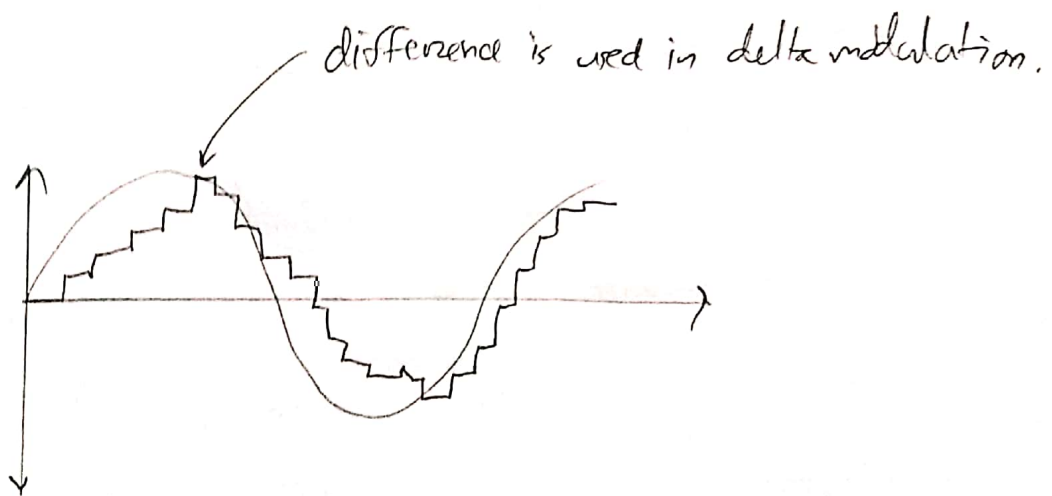 difference is used in delta modulation.